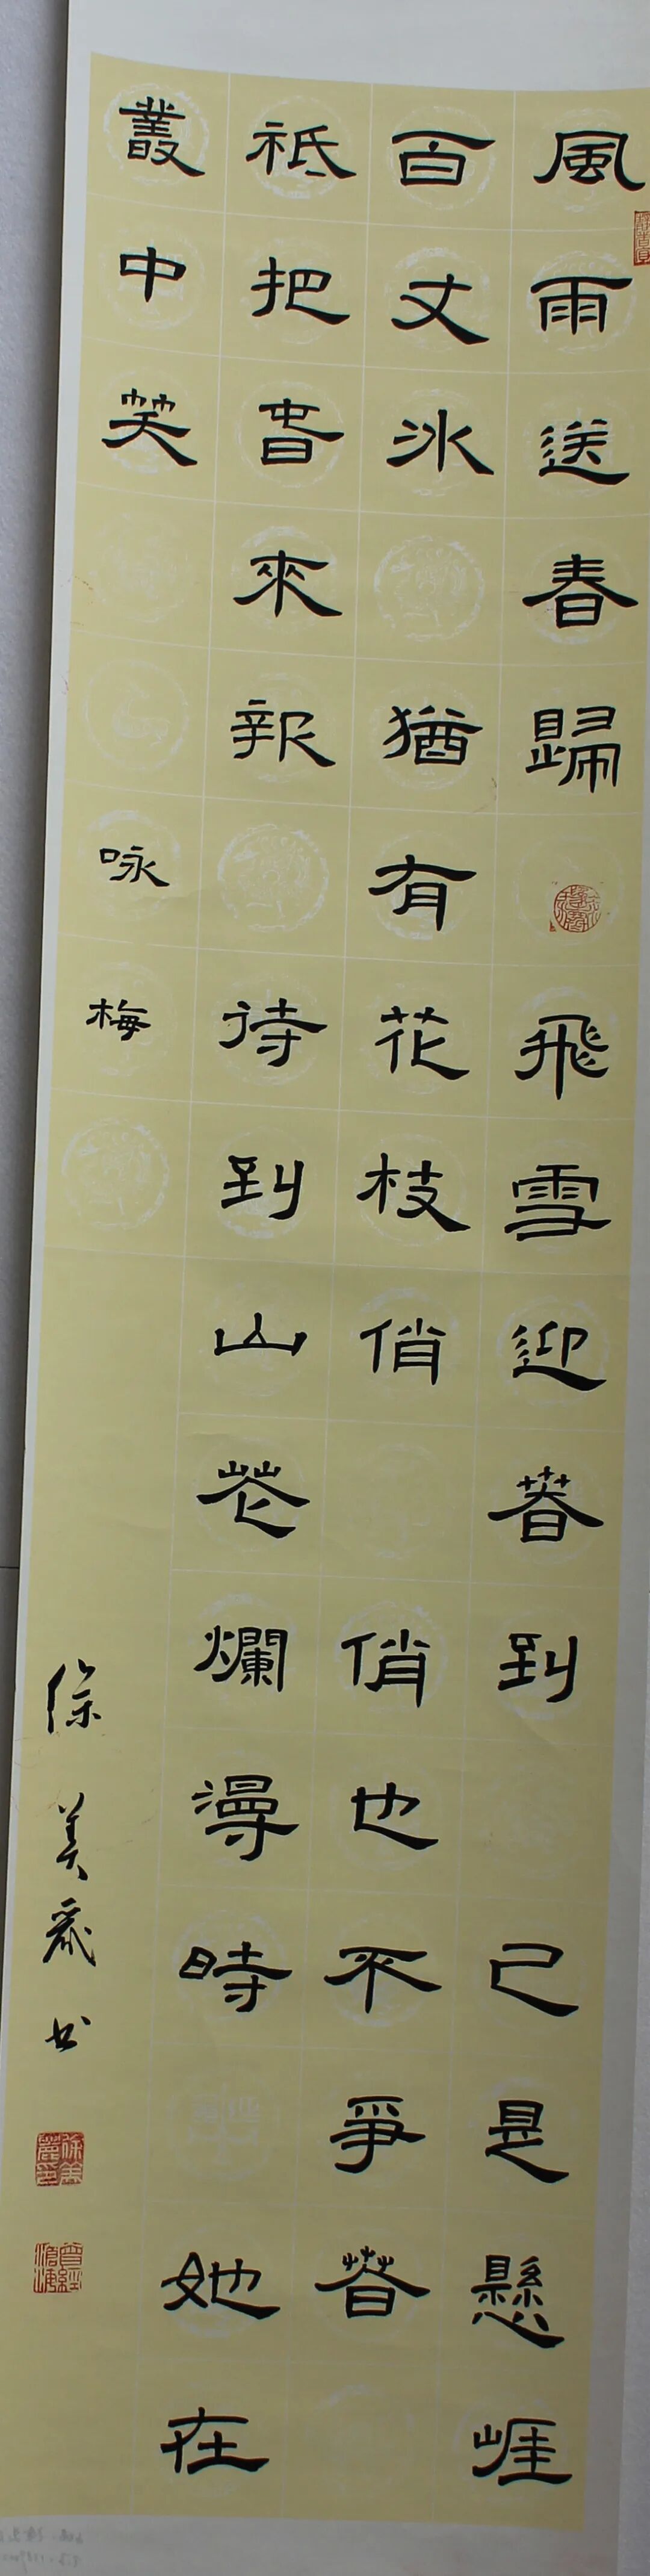 風雨送春歸 飛雪迎春到 已是懸崖
百丈冰 猶有花枝俏 俏也不爭春
衹把春來報 待到山花爛漫時 她在
叢中笑 咏梅
徐美麗書
徐美麗印
曾經滄海